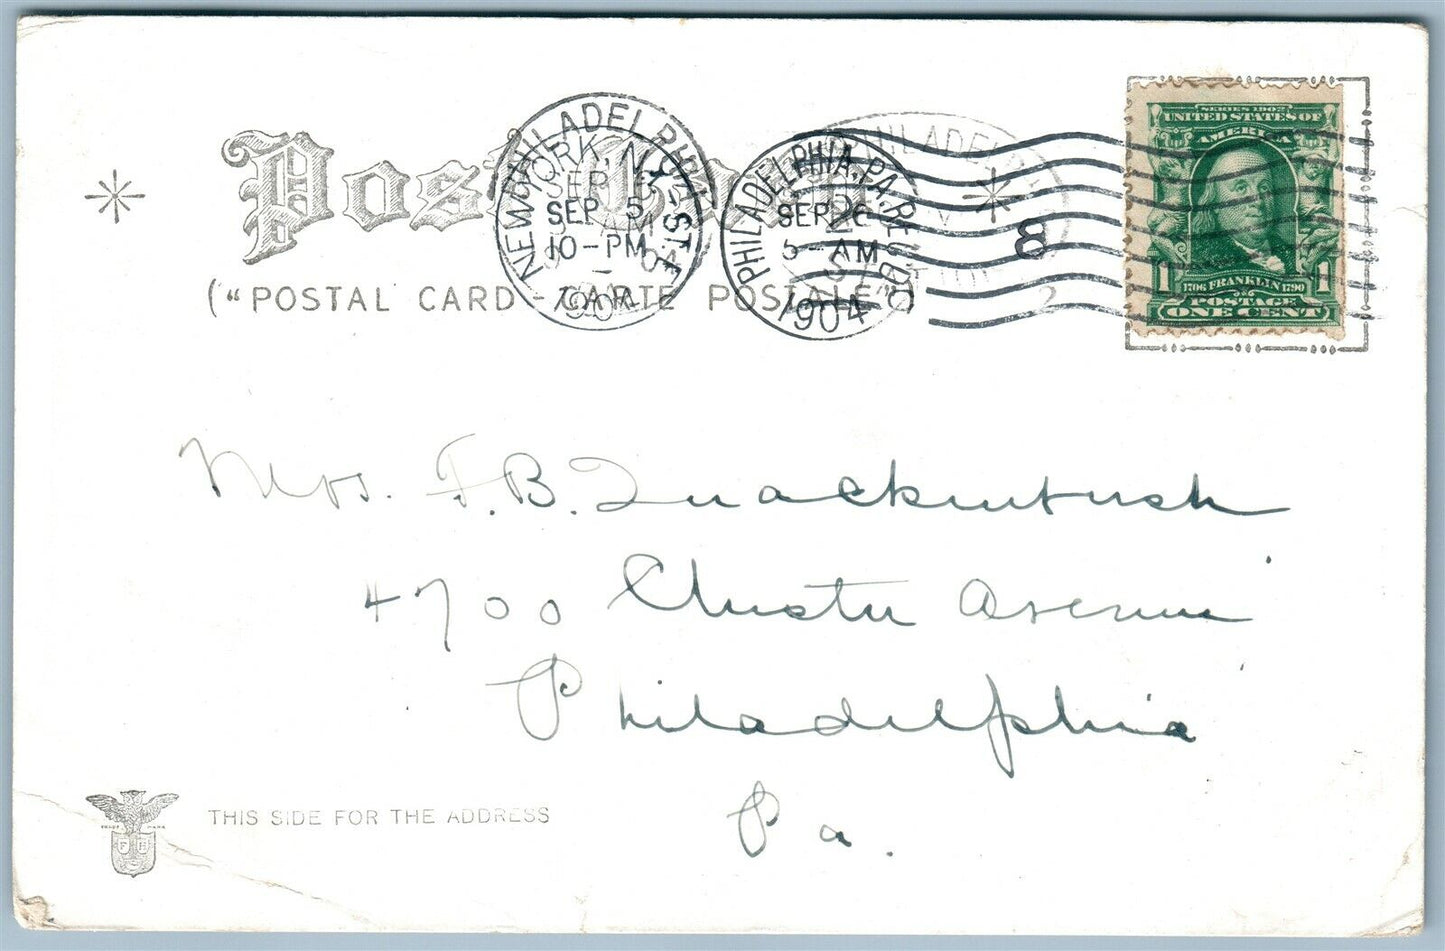 Post Card
("POSTAL CARD - CARTE POSTALE")
NEW YORK, N.Y.
SEP 5
10-PM
1904
PHILADELPHIA, PA. REC'D.
SEP 6
5-AM
1904
8
2
SERIES 1902
UNITED STATES OF
AMERICA
1 1706 FRANKLIN 1790 1
POSTAGE
ONE CENT
Mrs. F. B. Quackinbush
4700 Chester Avenue
Philadelphia
Pa.
TRADE MARK
F H
THIS SIDE FOR THE ADDRESS